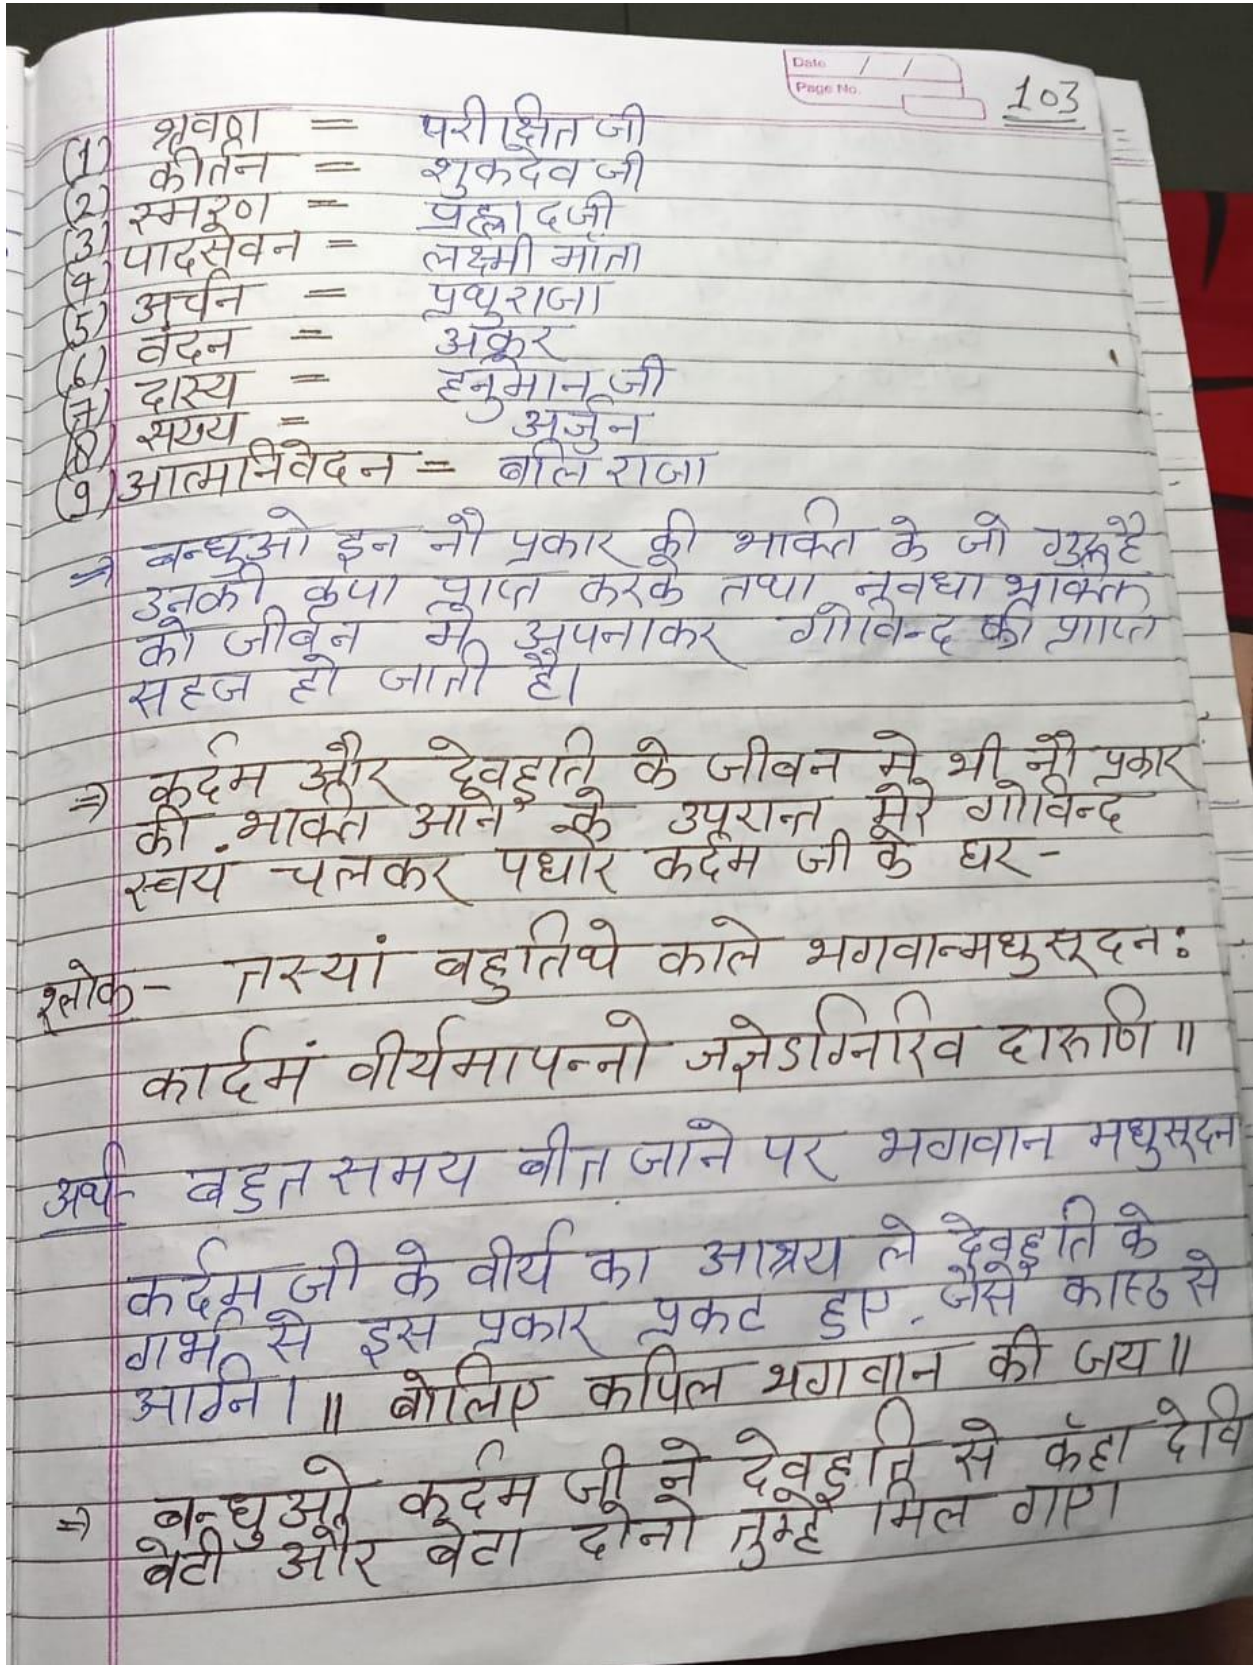 Date / /
Page No.
103
(1) श्रवण = परीक्षित जी
(2) कीर्तन = शुकदेव जी
(3) स्मरण = प्रह्लादजी
(4) पादसेवन = लक्ष्मी माँता
(5) अर्चन = प्रथुराजा
(6) वंदन = अक्रूर
(7) दास्य = हनुमान जी
(8) सख्य = अर्जुन
(9) आत्मनिवेदन = बलि राजा
⇒ बन्धुओ इन नौ प्रकार की भक्ति के जो गुरू है
उनकी कृपा प्राप्त करके तथा नवधा भक्ति
को जीवन मे अपनाकर गोविन्द की प्राप्ति
सहज हो जाती है।
⇒ कर्दम और देवहुति के जीवन मे भी नौ प्रकार
की भक्ति आने के उपरान्त मेरे गोविन्द
स्वयं चलकर पधारे कर्दम जी के घर -
श्लोक - तस्यां बहुतिथे काले भगवान्मधुसूदनः
कार्दमं वीर्यमापन्नो जज्ञेऽग्निरिव दारुणि ॥
अर्थ - बहुत समय बीत जाने पर भगवान मधुसूदन
कर्दम जी के वीर्य का आश्रय ले देवहुति के
गर्भ से इस प्रकार प्रकट हुए. जैसे काष्ठ से
अग्नि । ॥ बोलिए कपिल भगवान की जय ॥
⇒ बन्धुओ कर्दम जी ने देवहुति से कँहा देवि
बेटी और बेटा दोनो तुम्हे मिल गए।